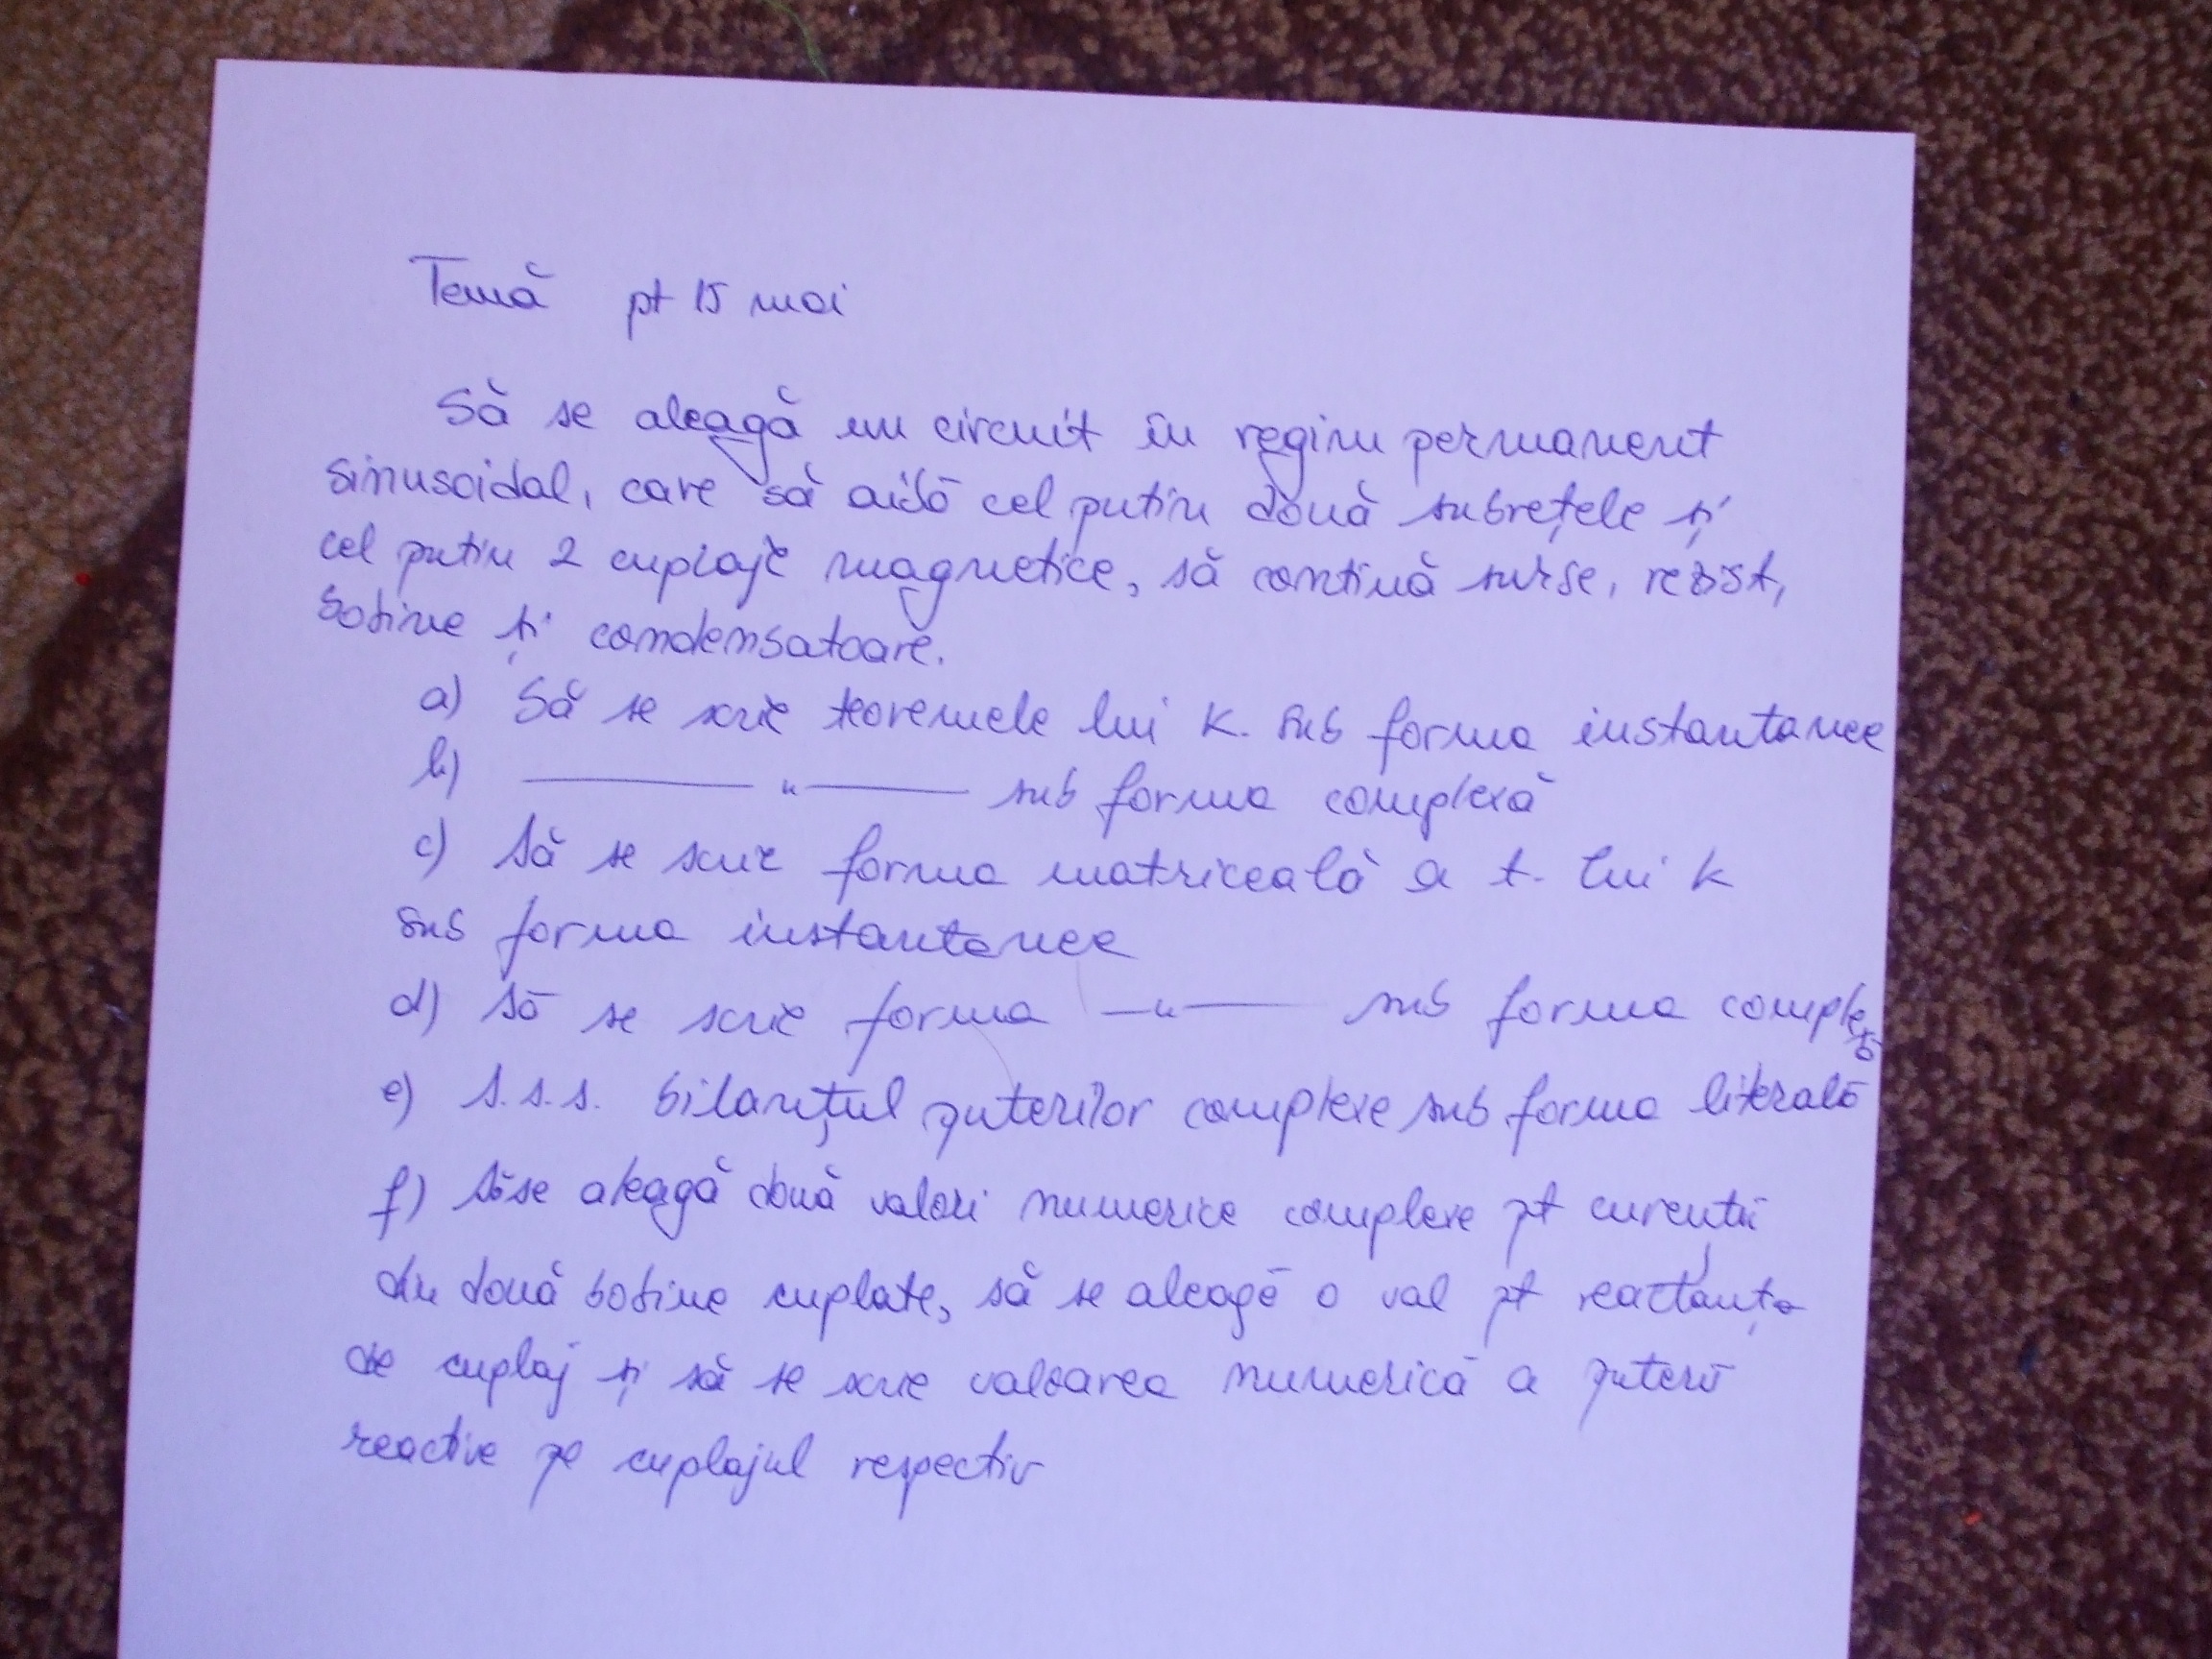 Temă pt 15 mai
Să se aleagă un circuit în regim permanent
sinusoidal, care să aibă cel puțin două subrețele și
cel puțin 2 cuplaje magnetice, să conțină surse, rezist,
bobine și condensatoare.
a) Să se scrie teoremele lui K. sub forma instantanee
b) ——— " ——— sub forma complexă
c) Să se scrie forma matriceală a t. lui K
sub forma instantanee
d) Să se scrie forma —"— sub forma complexă
e) s.s.s. bilanțul puterilor complexe sub forma literală
f) Să se aleagă două valori numerice complexe pt curenții
din două bobine cuplate, să se aleagă o val pt reactanța
de cuplaj și să se scrie valoarea numerică a puterii
reactive pe cuplajul respectiv